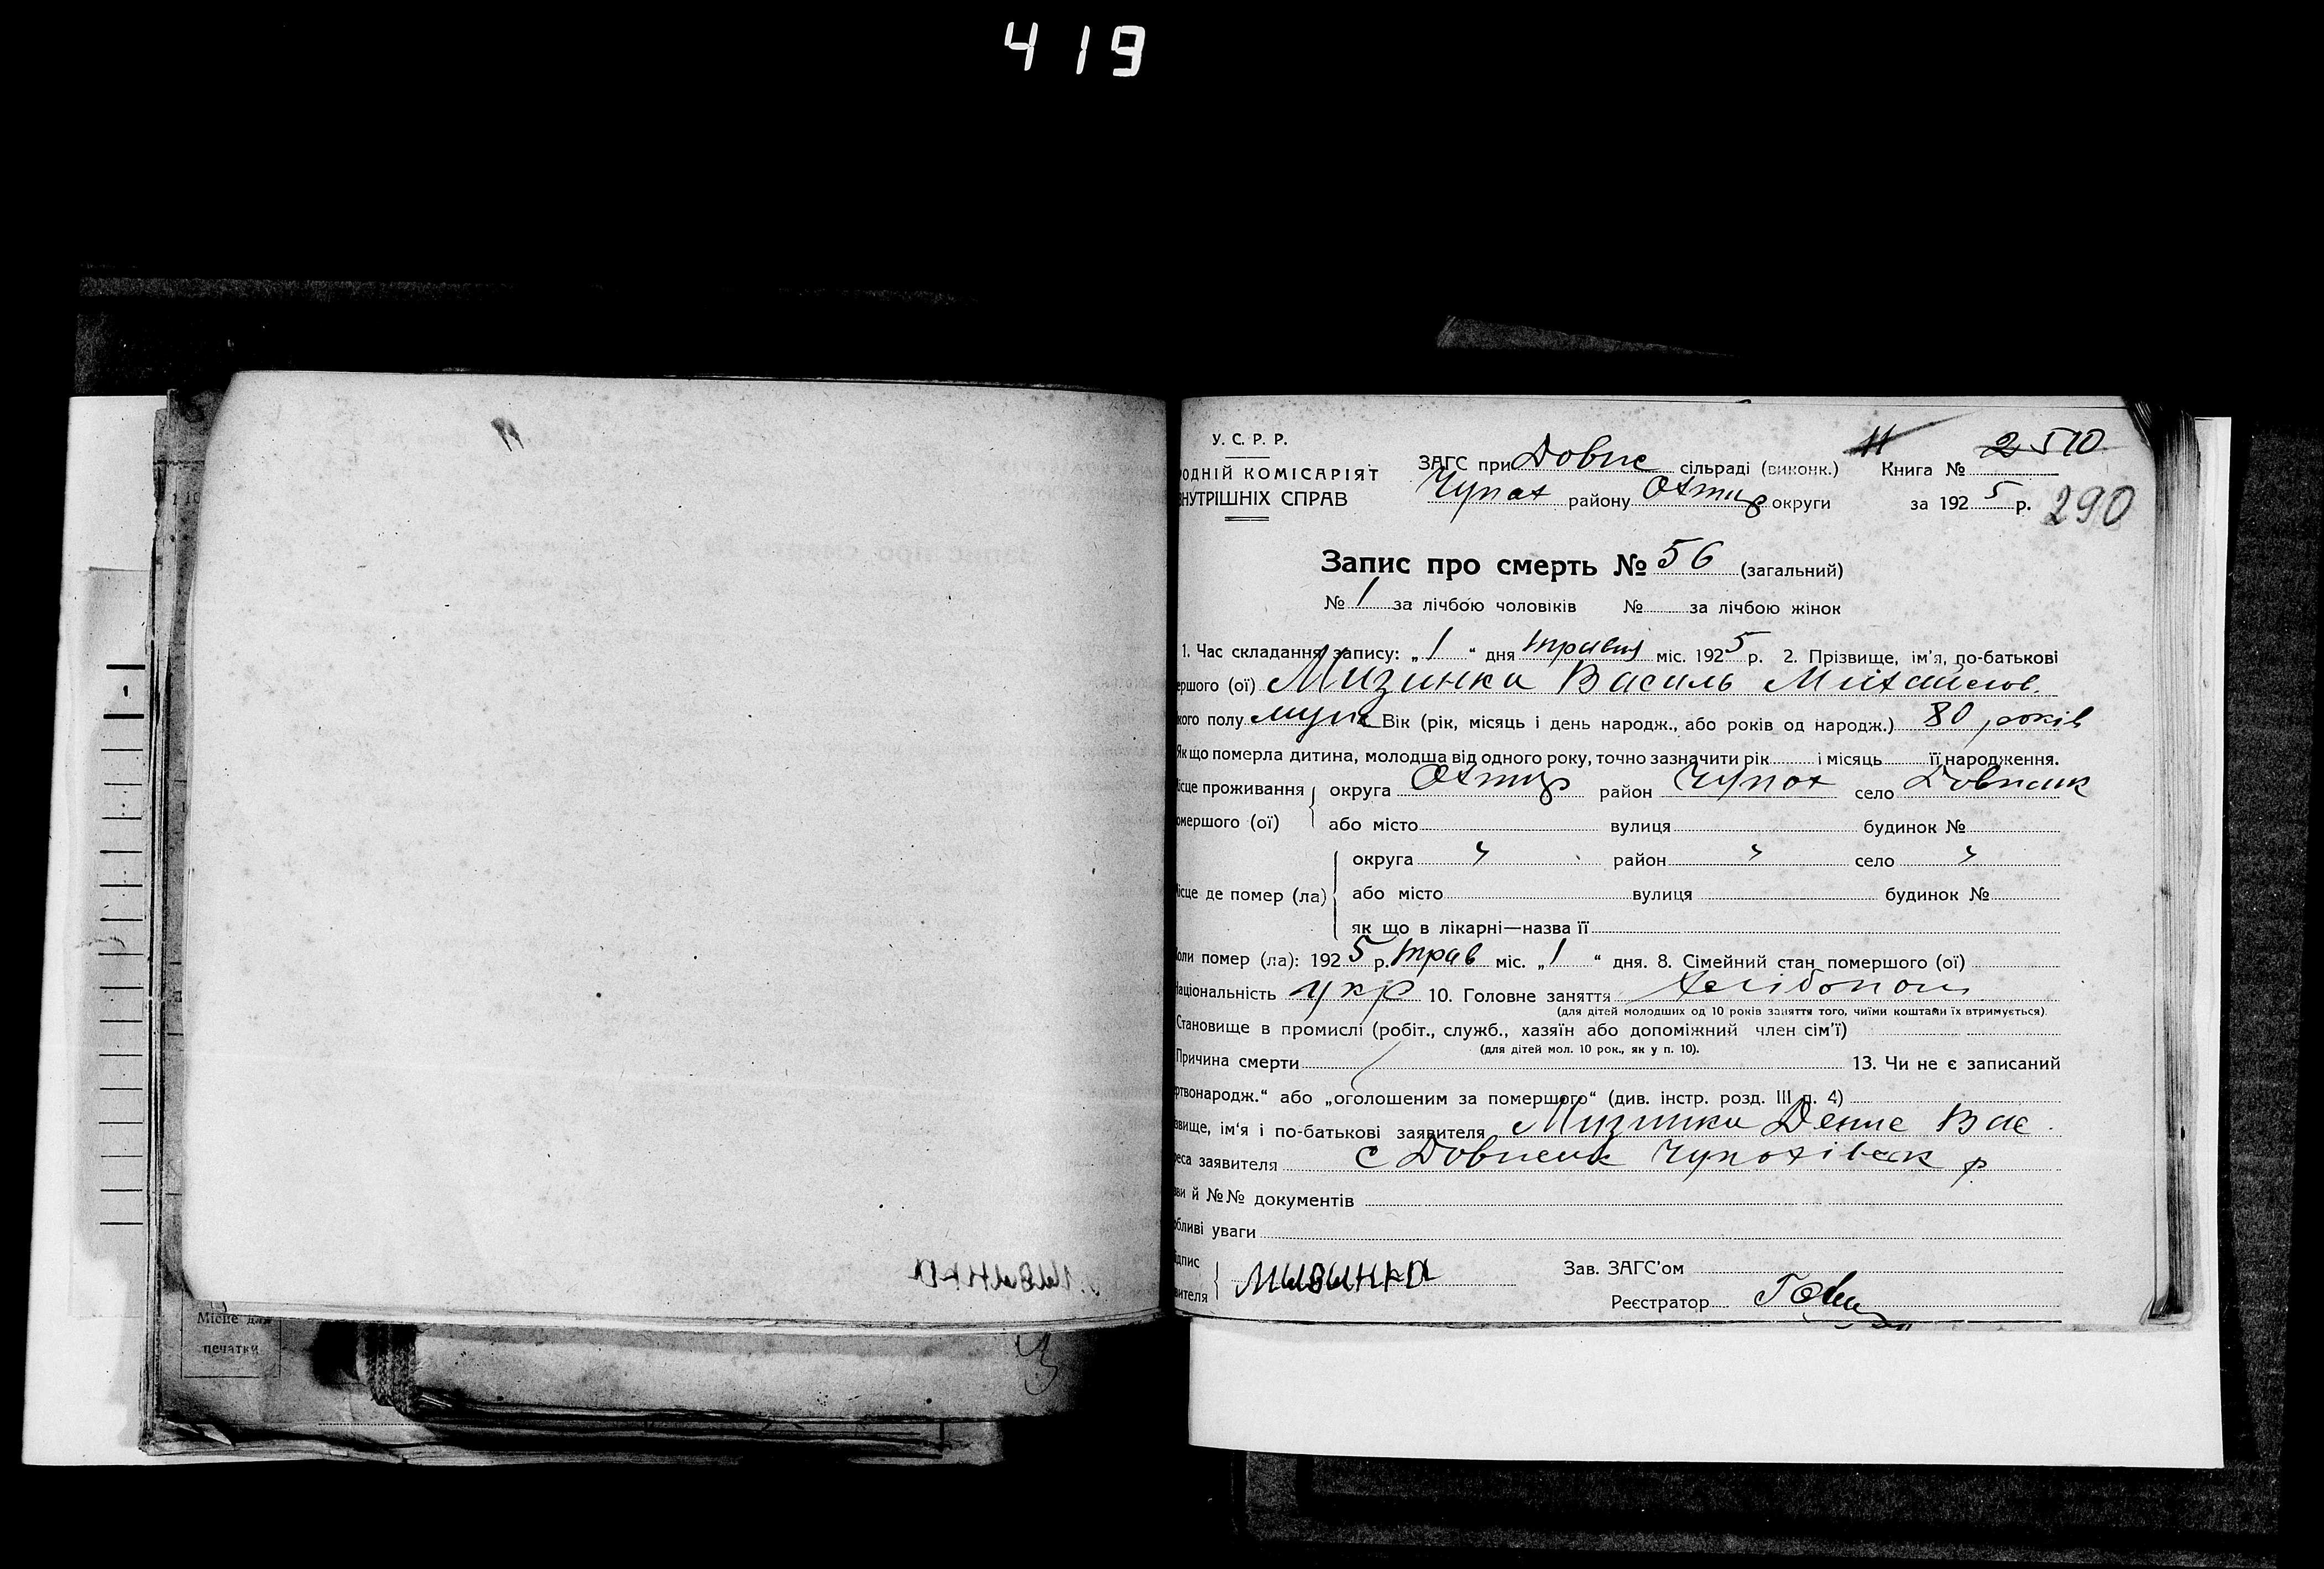 419
У. С. Р. Р.
ОДНІЙ КОМІСАРІЯТ
НУТРІШНІХ СПРАВ
ЗАГС при Довпс сільраді (виконк.) Книга № 2 5 10
Чупах району Охтир округи за 1925 р. 290
Запис про смерть № 56 (загальний)
№ 1 за лічбою чоловіків № за лічбою жінок
1. Час складання запису: „1“ дня травня міс. 1925 р. 2. Прізвище, ім'я, по-батькові
ершого (ої) Мизинка Василь Михайлов.
кого полу Вік (рік, місяць і день народж., або років од народж.) 80 років
Як що померла дитина, молодша від одного року, точно зазначити рік і місяць її народження.
ісце проживання округа Охтир район Чупах село
омершого (ої) або місто вулиця будинок №
округа " район " село "
ісце де помер (ла) або місто вулиця будинок №
як що в лікарні—назва її
оли помер (ла): 1925 р. трав міс. „1“ дня. 8. Сімейний стан помершого (ої)
аціональність укр 10. Головне заняття хлібопаш
(для дітей молодших од 10 років заняття того, чиїми коштами їх втримується)
Становище в промислі (робіт., служб., хазяїн або допоміжний член сім'ї)
(для дітей мол. 10 рок., як у п. 10).
Причина смерти 13. Чи не є записаний
ртвонародж.“ або „оголошеним за помершого“ (див. інстр. розд. III п. 4)
звище, ім'я і по-батькові заявителя Мизинка Денис Вас.
реса заявителя с Чупахівськ р
ви й №№ документів
бливі уваги
ідпис
вителя Мизинка
Зав. ЗАГС'ом
Реєстратор
Місце для
печатки